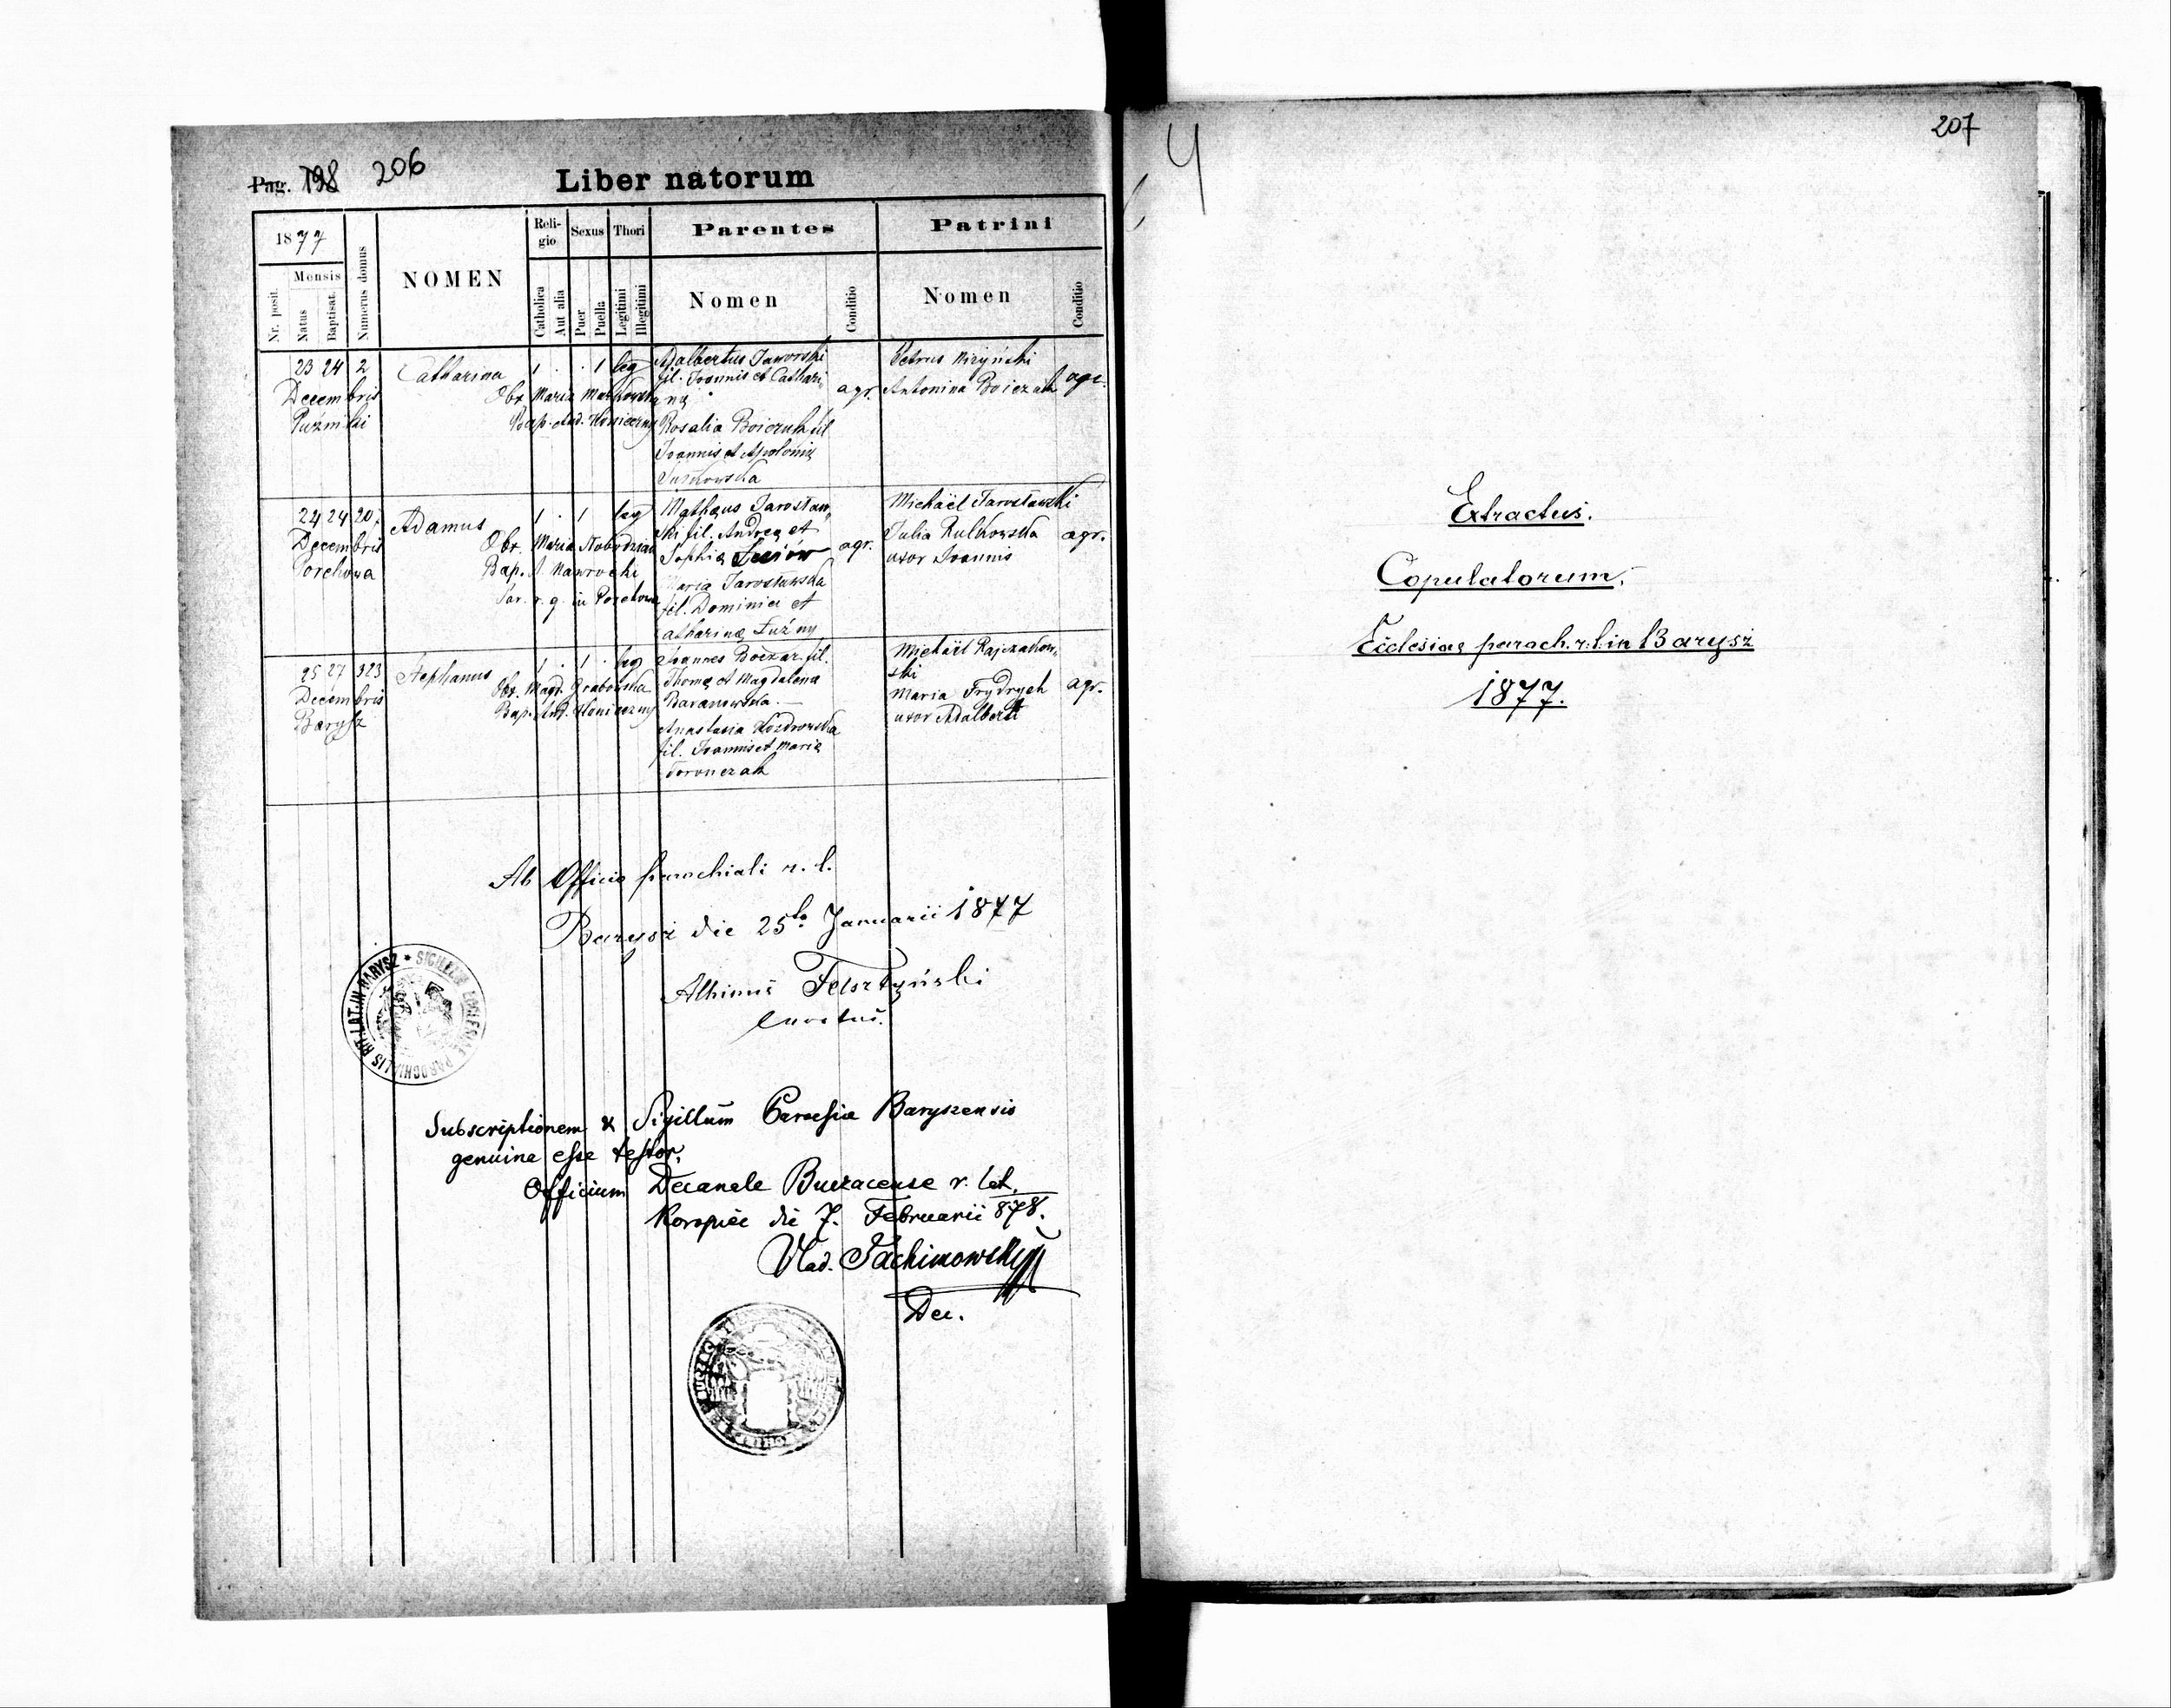 Pag. 198 206
Liber natorum
1877
Mensis
Nr. posit.
Natus
Baptisat.
Numerus domus
NOMEN
Religio
Catholica
Aut alia
Sexus
Puer
Puella
Thori
Legitimi
Illegitimi
Parentes
Nomen
Conditio
Patrini
Nomen
Conditio
23 24 2 Catharina 1 . . 1 leg
Decembris
Puźniki
Obx. Maria
Bap. And. Konieczny
Adalbertus Jaworski
fil. Joannis et Cathari,
nę
Rosalia Boiczuk fil
Joannis et Apolonię
agr.
Petrus
Antonina Boiczuk
agr.
24 24 20 Adamus 1 . 1 leg
Decembris
Porchowa
Obx. Maria
Bap. A. Nawrocki
Par. r. g. in Porchowa
Mathęus Jarosław,
ski fil. Andreę et
Sophię
Maria Jarosławska
fil. Dominici et
Catharinę Łuźny
agr.
Michaël Jarosławski
Julia Kulkowska
uxor Joannis
agr.
25 27 323 Stephanus 1 . 1 . leg
Decembris
Barysz
Obx. Magd. Grabowska
Bap. And. Konieczny
Joannes Boczar fil.
Thomę et Magdalena
Baranowska.
Anastasia
fil. Joannis et Marię
Michaël Rajczakow,
ski
Maria Frydrych
uxor Adalberti
agr.
Ab Officio parochiali r. l.
Barysz die 25ta Januarii 1877
Albinus Felsztyński
Curatus.
SIGILLUM ECCLESIAE PAROCHIALIS RIT. LAT. IN BARYSZ
Subscriptionem & Sigillum Paroesiae Baryszensis
genuina esse testor.
Officium Decanale Buczacense r. lat.
Koropiec die 7. Februarii 878.
Vlad. Jachimowski
Dec.
207
Extractus.
Copulatorum.
Ecclesiae paroch. r. l. in Barysz
1877.